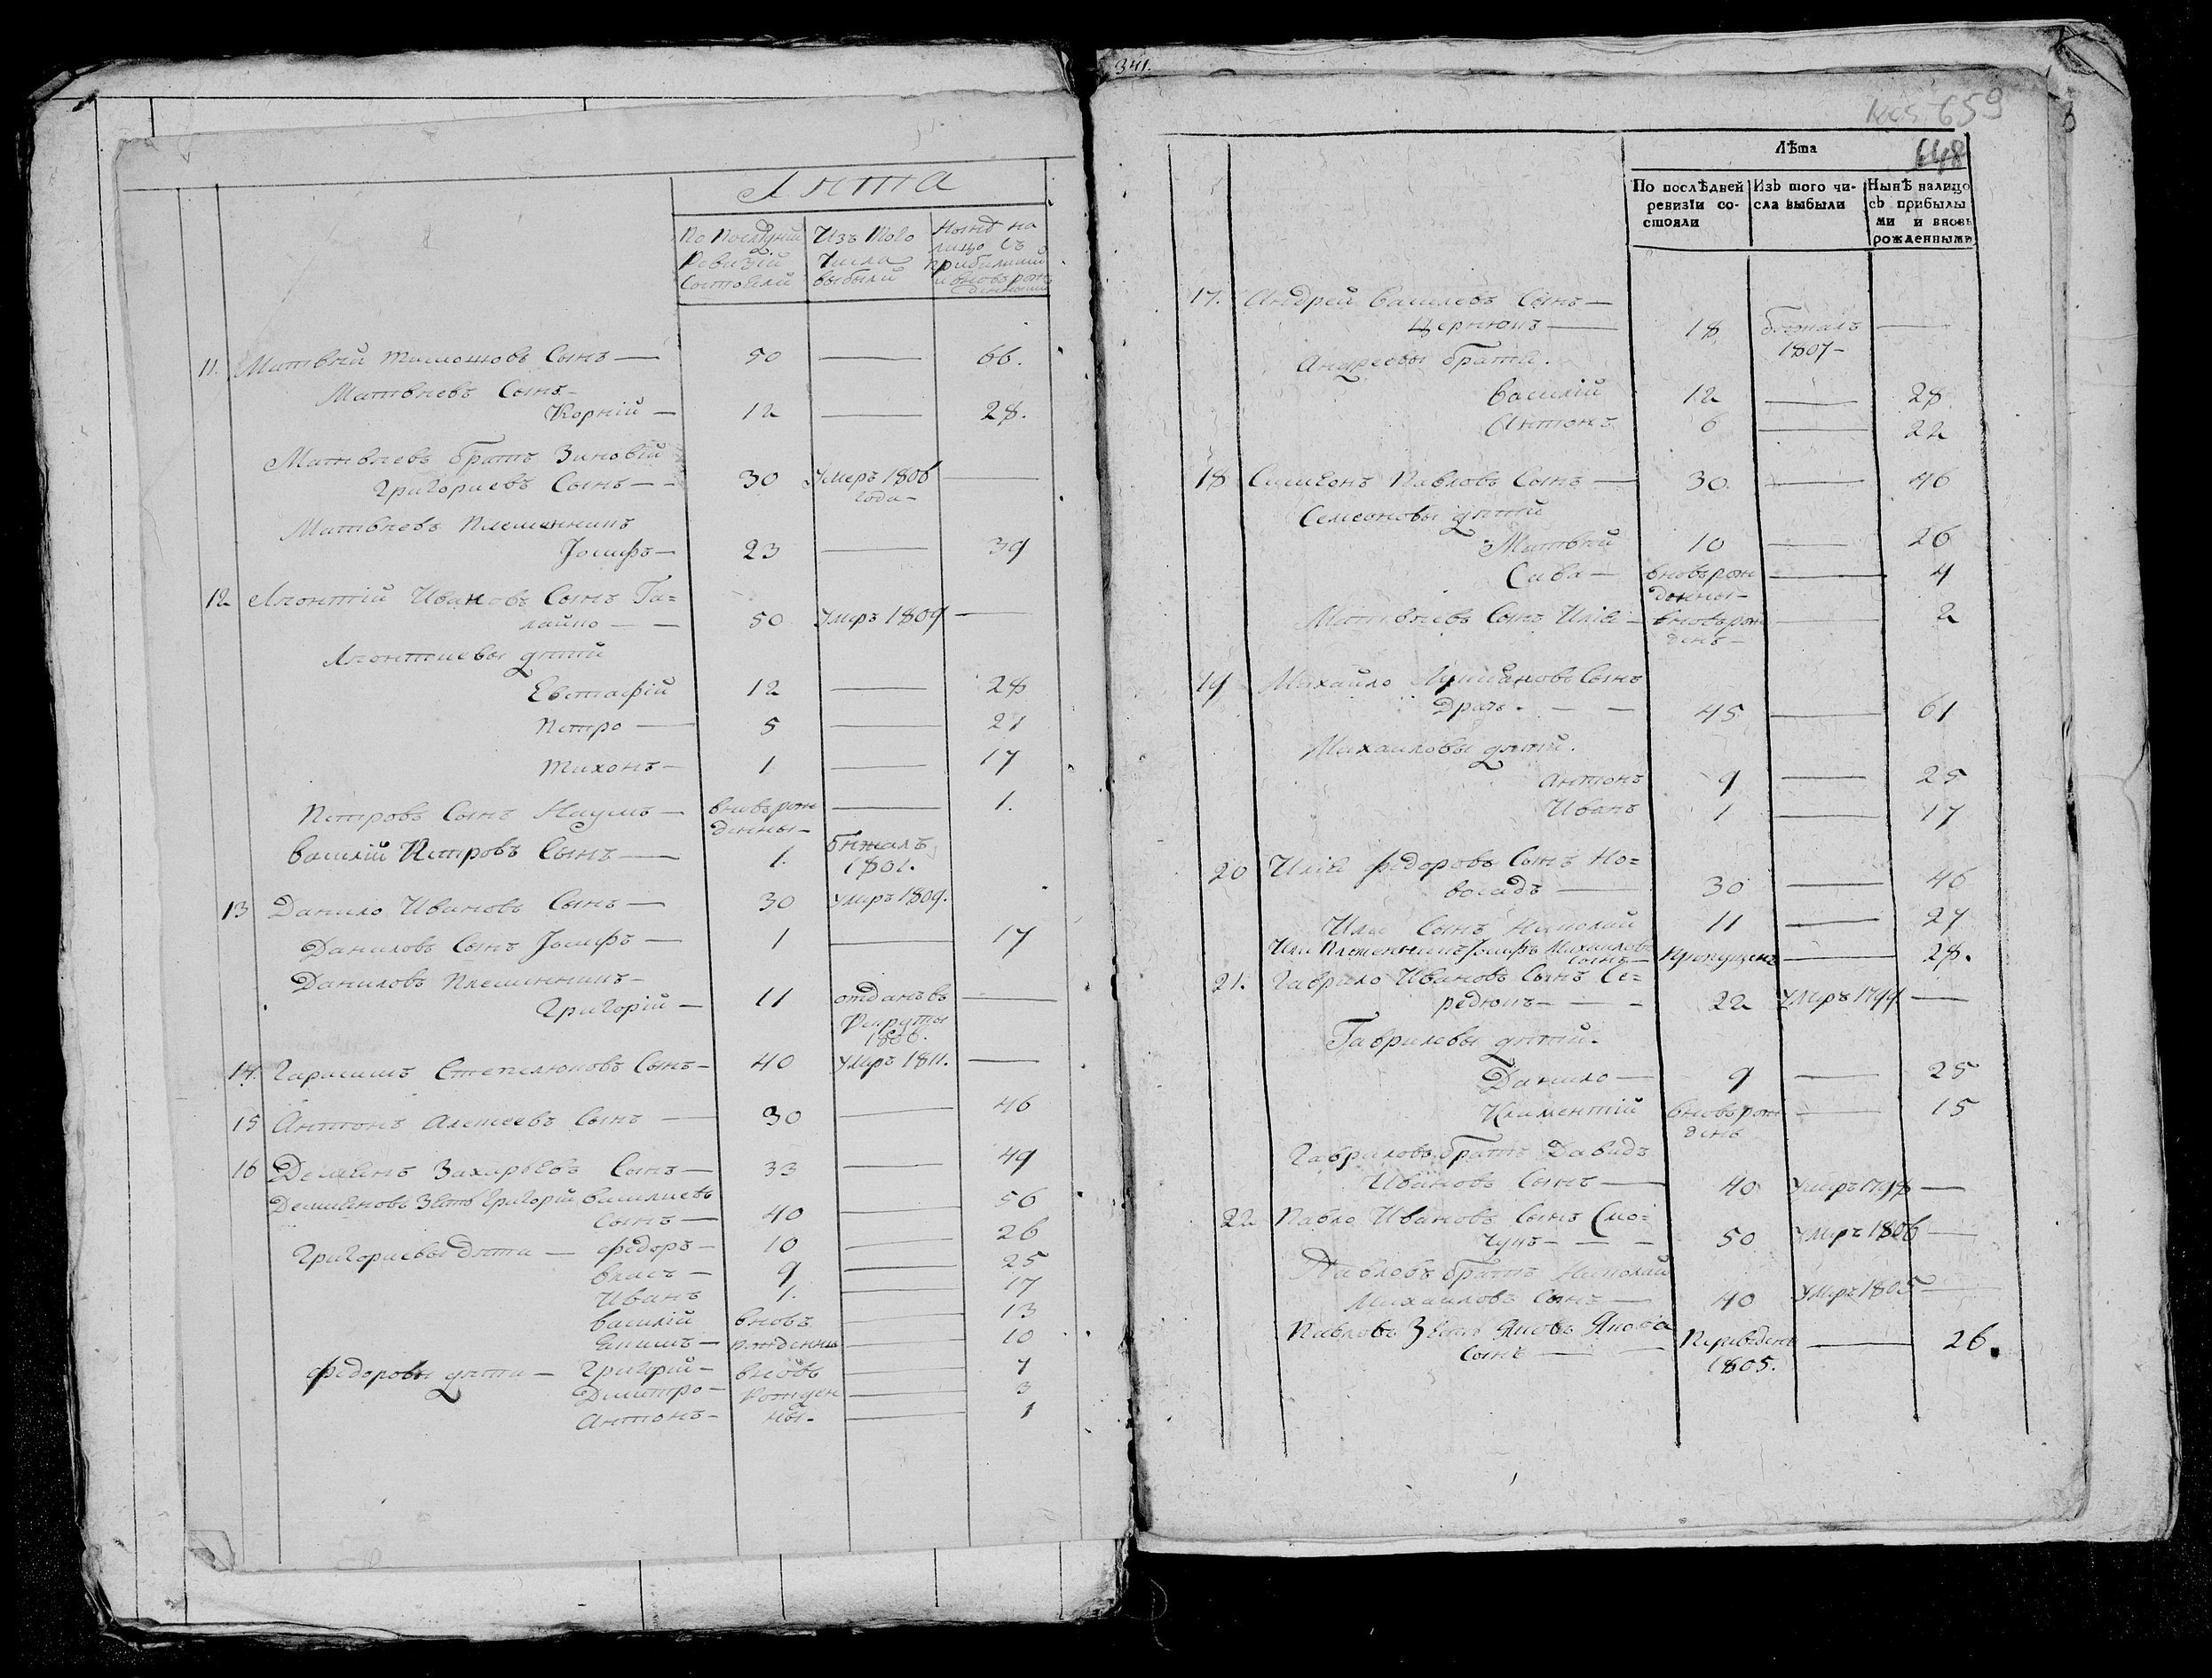 Лѣта
По Послѣдней Ревизій Состояли
Изъ того Числа выбыли
Нынѣ на лицо съ прибылыми и вновь рожденными
11. Матвѣй Тимошовъ Сынъ — 50 — 66.
Матвѣевъ Сынъ
Корнѣй — 12 — 28.
Матвѣевъ братъ Зиновѣй
Григориевъ Сынъ — 30 Умеръ 1806 года —
Матвѣевъ Племянникъ
Іосифъ — 23 — 39
12 Леонтій Ивановъ Сынъ Га=
лайко — 50 Умеръ 1809 —
Леонтиевы дѣтий
Евстафій 12 — 28
Петро — 5 — 21
Тихонъ — 1 — 17
Петровъ Сынъ Наумъ — вновьрожденны — 1.
Василій Петровъ Сынъ — 1. бѣжалъ 1801.
13 Данило Ивановъ Сынъ — 30 умеръ 1809.
Даниловъ Сынъ Іосифъ — 1 — 17
Даниловъ Племянникъ
Григорій — 11 отданъ въ Рекруты 1806. —
14. Гарасимъ Сынъ — 40 умеръ 1811. —
15 Антонъ Алексеевъ Сынъ — 30 — 46
16 Демянъ Захарьевъ Сынъ — 33 — 49
Демяновъ Зять Григорій Василиевъ
Сынъ — 40 — 56
Григориевы дѣти — Федоръ — 10 — 26
Власъ — 9 — 25
Иванъ 1. — 17
Василій вновь — 13
Якимъ — рожденны — 10
Федоровы дѣти — Григорій — вновь — 7
Димитро — Рожден — 3
Антонъ — ны. — 1
341.
659
648
Лѣта
По послѣдней ревизіи состояли
Изъ того числа выбыли
Нынѣ налицо съ прибылыми и вновь рожденными
17. Андрей Василевъ Сынъ —
Чернюкъ — 18 бѣжалъ 1807 — —
Андреевы брата.
Василій 12 — 28
Антонъ 6 — 22
18 Симеонъ Павловъ Сынъ — 30 — 46
Семеоновы дѣтий
Матвѣй 10 — 26
Сава — вновьрожденны — 4
Матвѣевъ Сынъ Илія — вновьрожденъ — 2
19 Михайло Сынъ
Драчъ — 45 — 61
Михаиловы дѣтий.
Антонъ 9 — 25
Иванъ 1 — 17
20 Илія Федоровъ Сынъ Но=
восадъ — 30 — 46
Илии Сынъ Николай 11 — 27
Илии Племенникъ Іосифъ Михаиловъ
Сынъ — Пропущенъ — 28.
21. Гаврило Ивановъ Сынъ Се=
редюкъ — 22 Умеръ 1799 —
Гаврилевы дѣтий.
Данило — 9 — 25
Климентій вновьрожденъ — 15
Гавриловъ братъ Давидъ
Ивановъ Сынъ — 40 Умеръ 1798 —
22 Павло Ивановъ Сынъ Смо=
— 50 Умеръ 1806 —
Павловъ братъ Николай
Михаиловъ Сынъ — 40 Умеръ 1805 —
Павловъ Зять Яковъ
Сынъ — Переведенъ 1805. — 26.